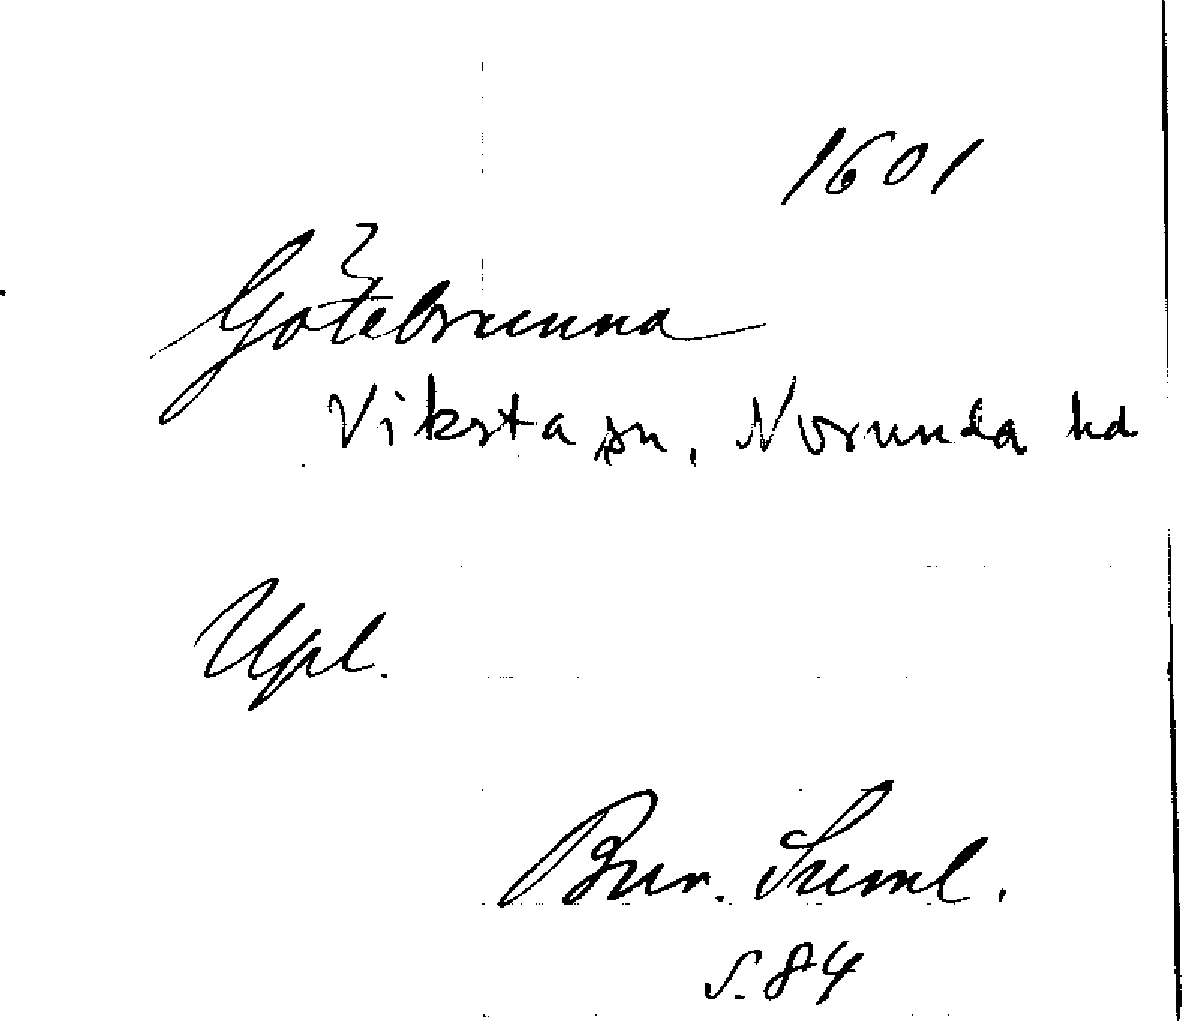 1601
Götebrunna
Viksta sn, Norunda hd
Upl.
Bur. Suml.
s. 84